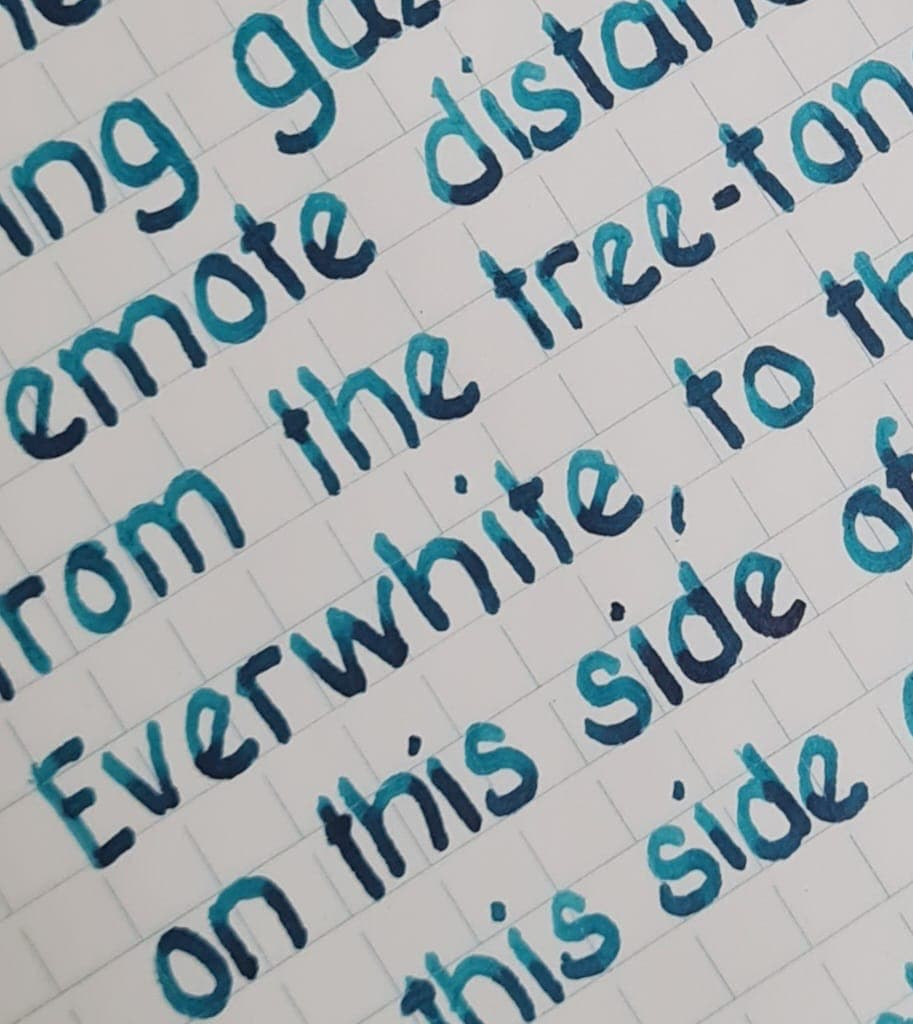 ing gaz
emote distan
from the tree-ton
Everwhite, to th
on this side of
this side